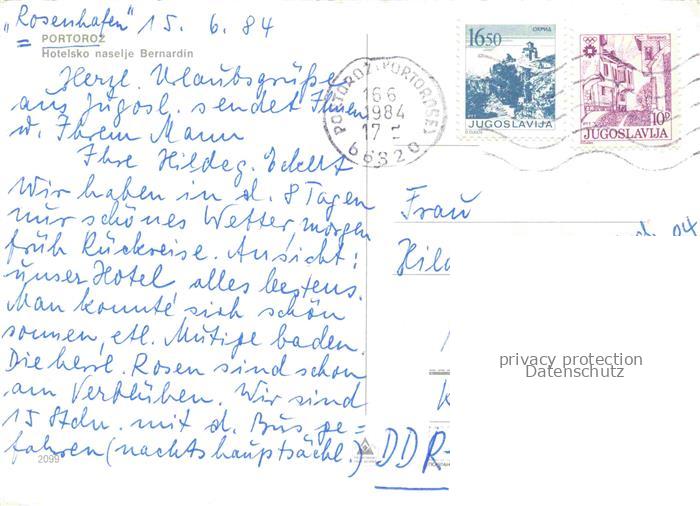 „Rosenhafen" 15. 6. 84
= PORTOROŽ
Hotelsko naselje Bernardin
Herzl. Urlaubsgrüße
aus Jugosl. sendet Ihnen
u. Ihrem Mann
Ihre Hildeg. Eckelt
Wir haben in d. 8 Tagen
nur schönes Wetter, morgen
früh Rückreise. Ansicht:
unser Hotel, alles bestens.
Man konnte sich schön
sonnen, etl. Mutige baden.
Die herrl. Rosen sind schon
am Verblühen. Wir sind
15 Stdn. mit d. Bus ge=
fahren (nachts hauptsächl.)
2099
PORTOROŽ-PORTOROSE
16 6
1984
17
66320
1650
JUGOSLAVIJA
Sarajevo
10D
JUGOSLAVIJA
Frau
Hild
privacy protection
Datenschutz
DDR-